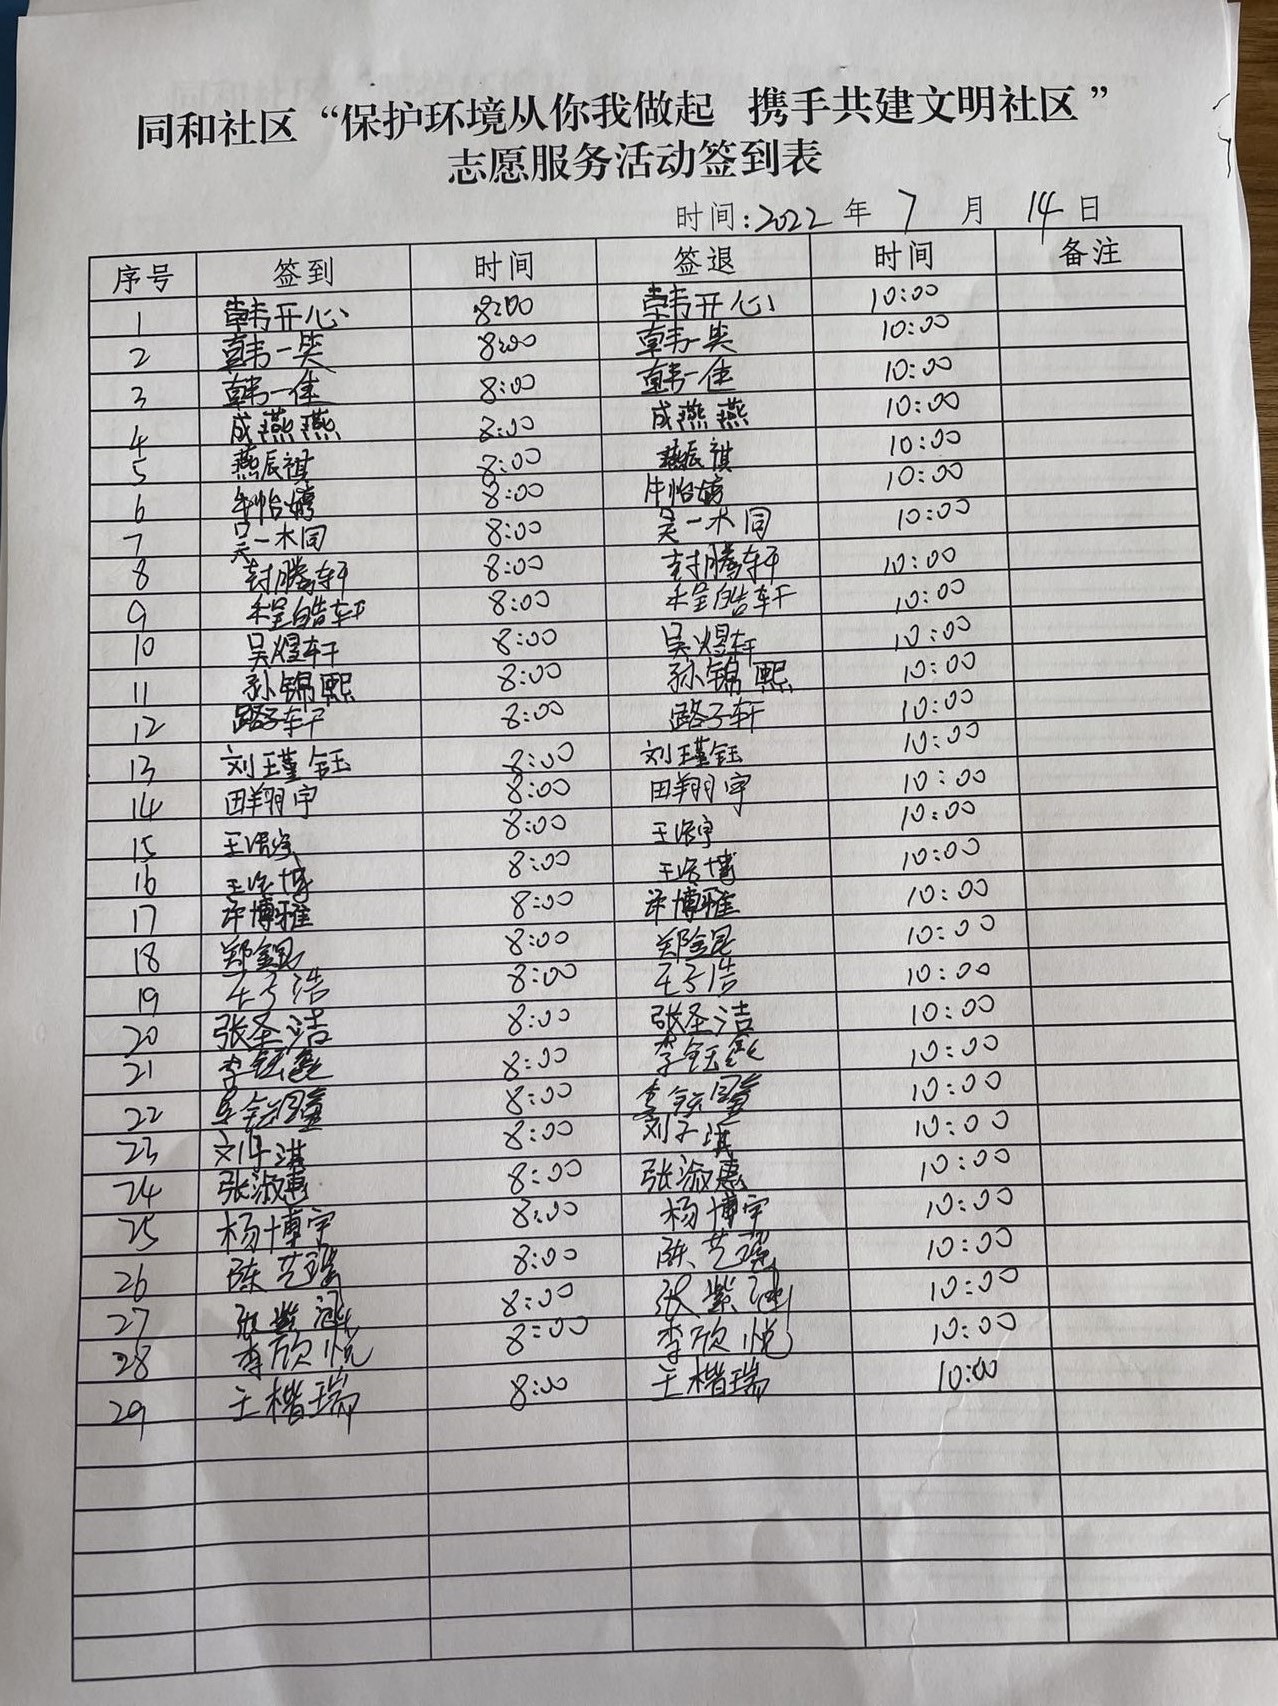 同和社区“保护环境从你我做起 携手共建文明社区”
志愿服务活动签到表
时间:2022年7月14日
序号 签到 时间 签退 时间 备注
1 韩开心 8:00 韩开心 10:00
2 韩一笑 8:00 韩一笑 10:00
3 韩一佳 8:00 韩一佳 10:00
4 成燕燕 8:00 成燕燕 10:00
5 燕辰祺 8:00 燕辰祺 10:00
6 牛怡婷 8:00 牛怡婷 10:00
7 吴一木同 8:00 吴一木同 10:00
8 封腾轩 8:00 封腾轩 10:00
9 程皓轩 8:00 程皓轩 10:00
10 吴煜轩 8:00 吴煜轩 10:00
11 孙锦熙 8:00 孙锦熙 10:00
12 路子轩 8:00 路子轩 10:00
13 刘瑾钰 8:00 刘瑾钰 10:00
14 田翔宇 8:00 田翔宇 10:00
15 王浩宇 8:00 王浩宇 10:00
16 王浩博 8:00 王浩博 10:00
17 许博雅 8:00 许博雅 10:00
18 郑金昆 8:00 郑金昆 10:00
19 8:00 10:00
20 张圣洁 8:00 张圣洁 10:00
21 李钰 8:00 李钰 10:00
22 8:00 10:00
23 刘子淇 8:00 刘子淇 10:00
24 张淑惠 8:00 张淑惠 10:00
25 杨博宇 8:00 杨博宇 10:00
26 陈艺 8:00 陈艺 10:00
27 张紫涵 8:00 张紫涵 10:00
28 李欣悦 8:00 李欣悦 10:00
29 王楷瑞 8:00 王楷瑞 10:00